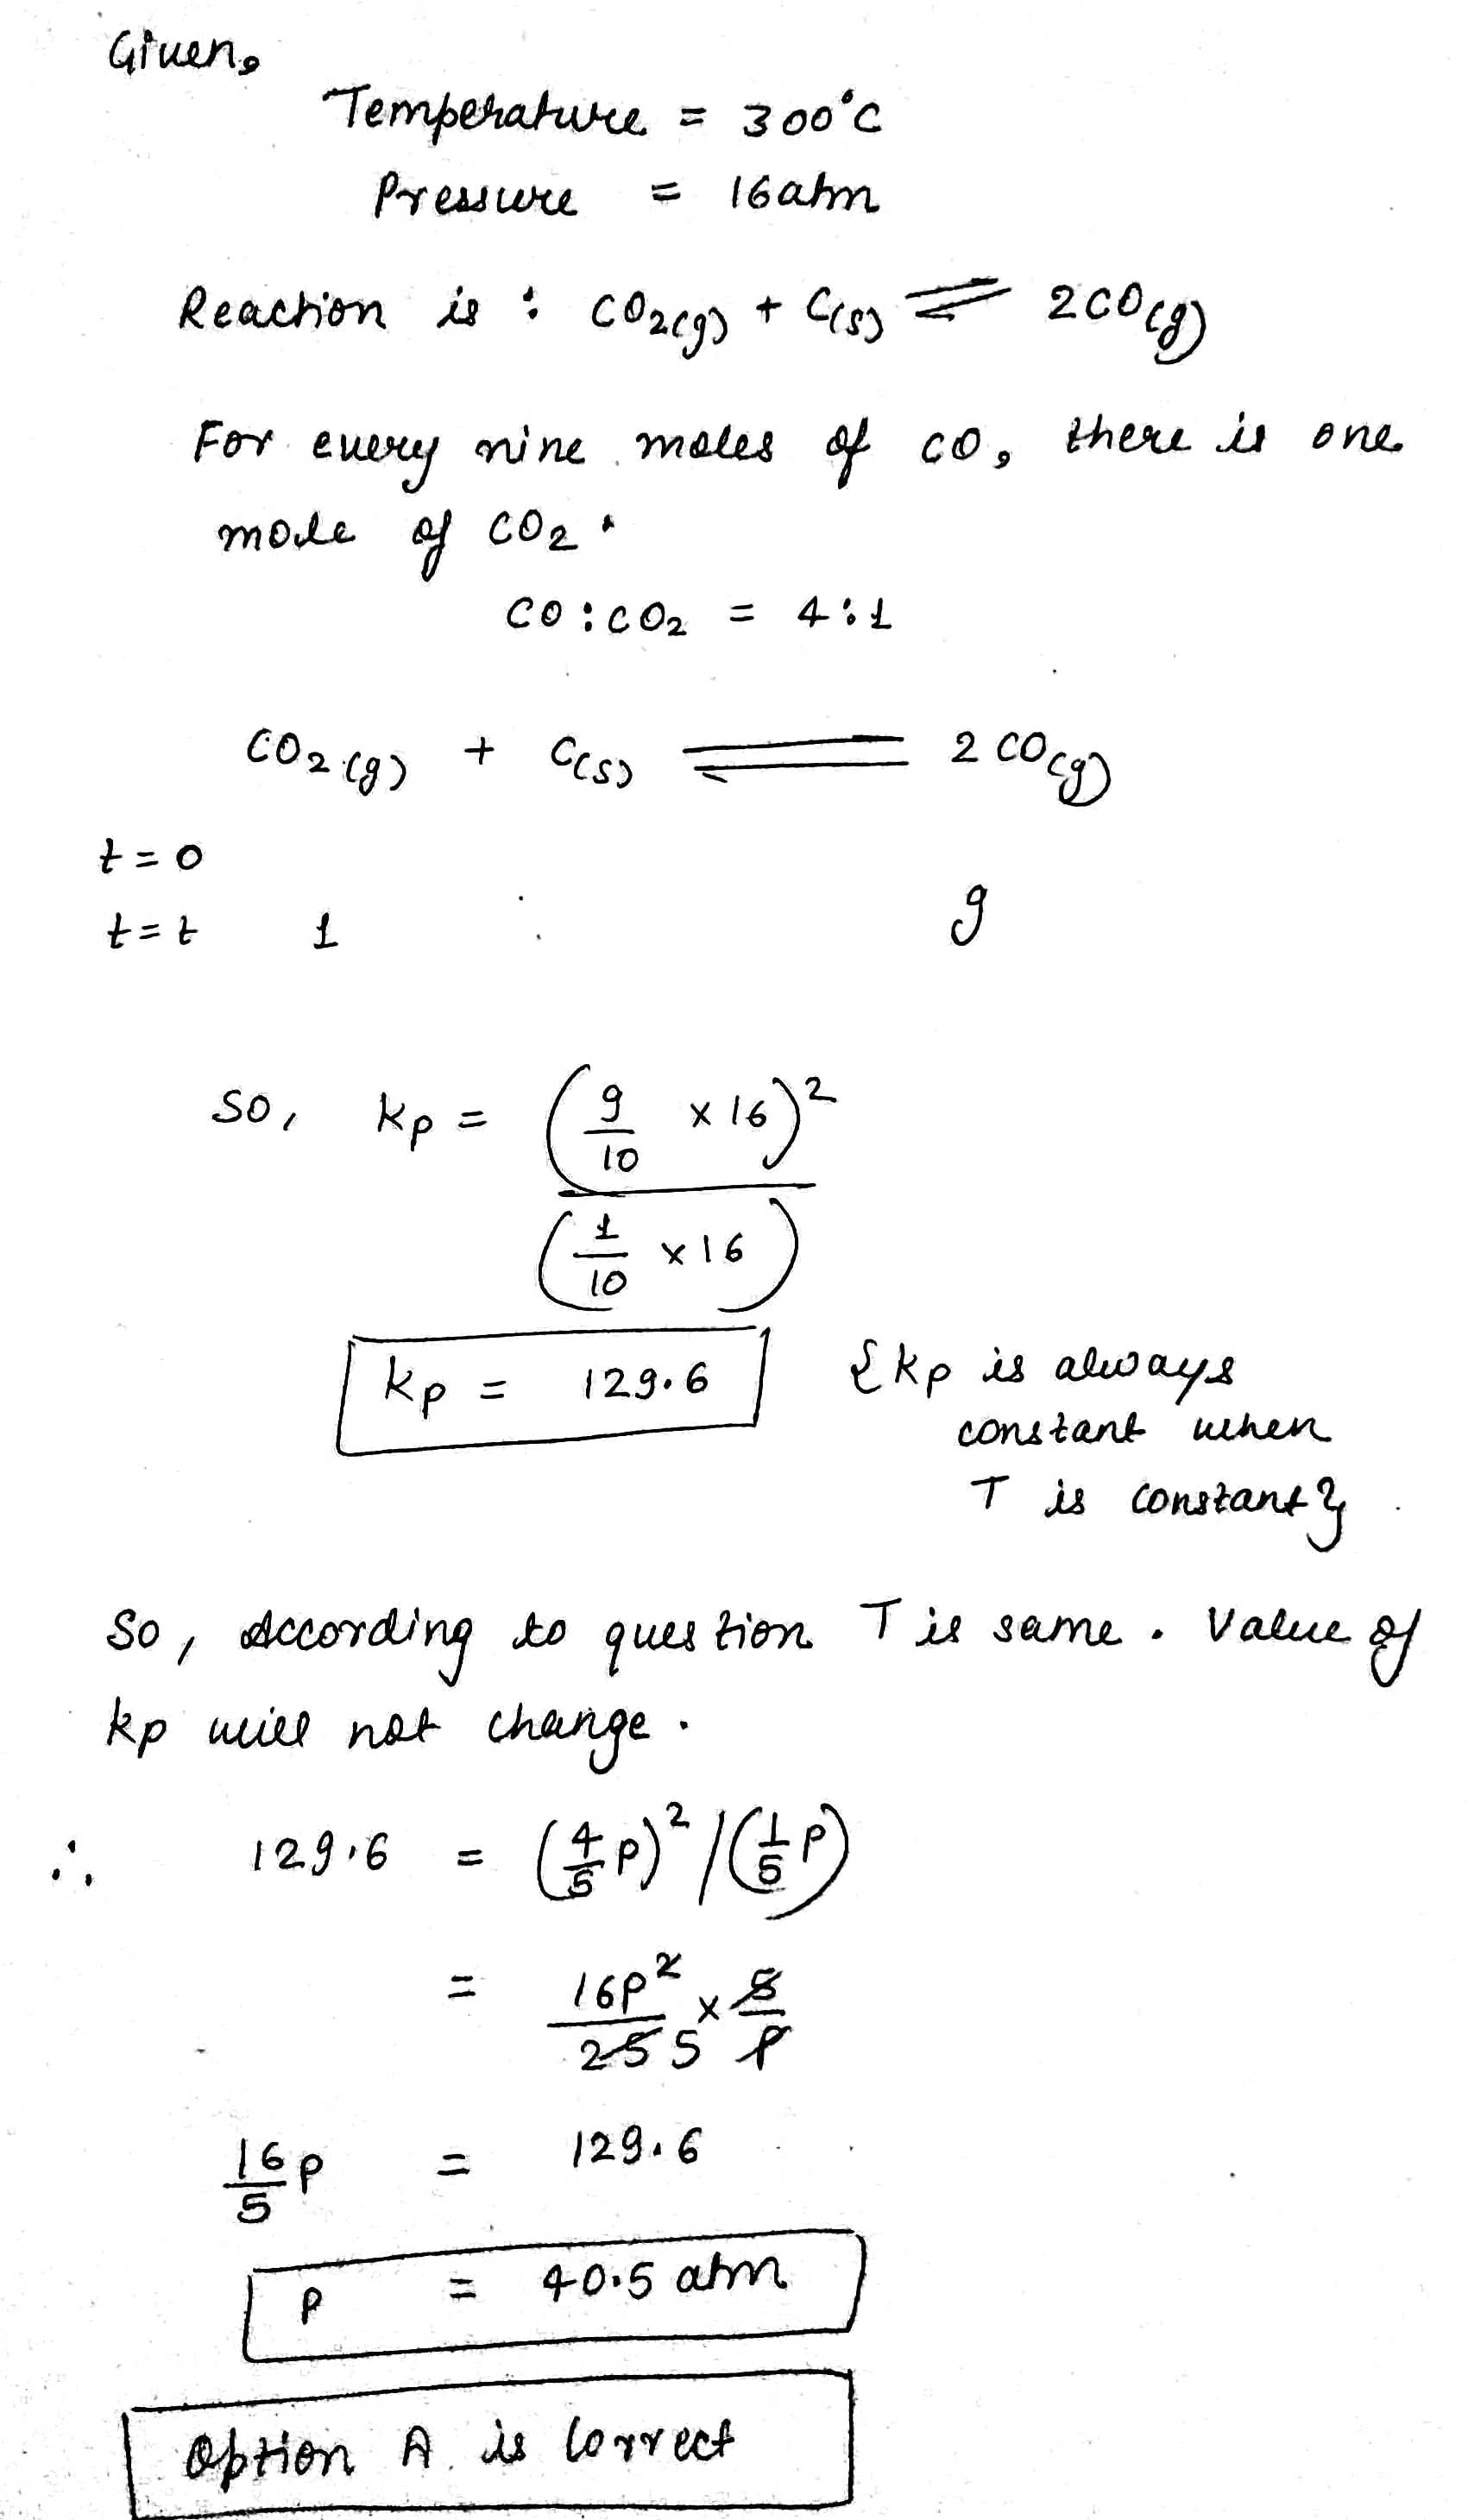 Given,
Temperature = 300°C
Pressure = 16atm
Reaction is : CO2(g) + C(s) ⇌ 2CO(g)
For every nine moles of CO, there is one
mole of CO2.
CO : CO2 = 4 : 1
CO2(g) + C(s) ⇌ 2CO(g)
t=0
t=t 1 9
So, kp = (9/10 × 16)² / (1/10 × 16)
kp = 129.6 {kp is always
constant when
T is constant}
So, According to question T is same. Value of
kp will not change.
∴ 129.6 = (4/5 P)² / (1/5 P)
= 16P²/25 5 × 5/P
16/5 P = 129.6
P = 40.5 atm
Option A is Correct